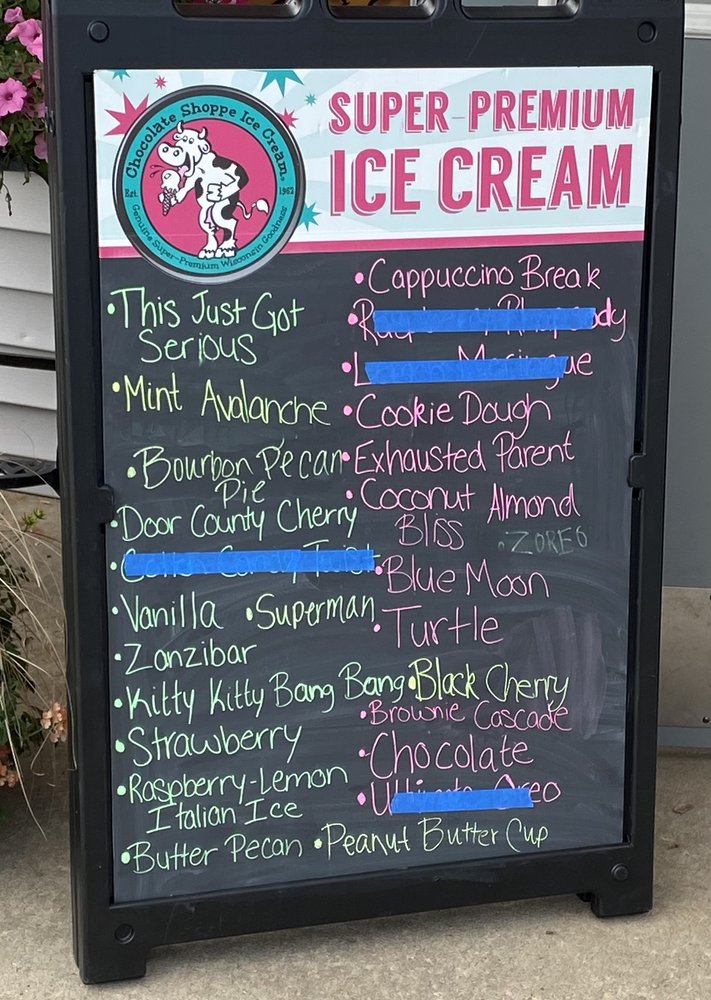 Chocolate Shoppe Ice Cream®
Est. 1962
Genuine Super-Premium Wisconsin Goodness
SUPER-PREMIUM
ICE CREAM
•This Just Got
Serious
•Mint Avalanche
•Bourbon Pecan
Pie
•Door County Cherry
•Vanilla •Superman
•Zanzibar
•Kitty Kitty Bang Bang
•Strawberry
•Raspberry-Lemon
Italian Ice
•Butter Pecan •Peanut Butter Cup
•Cappuccino Break
•Cookie Dough
•Exhausted Parent
•Coconut Almond
Bliss
•Blue Moon
•Turtle
•Black Cherry
•Brownie Cascade
•Chocolate